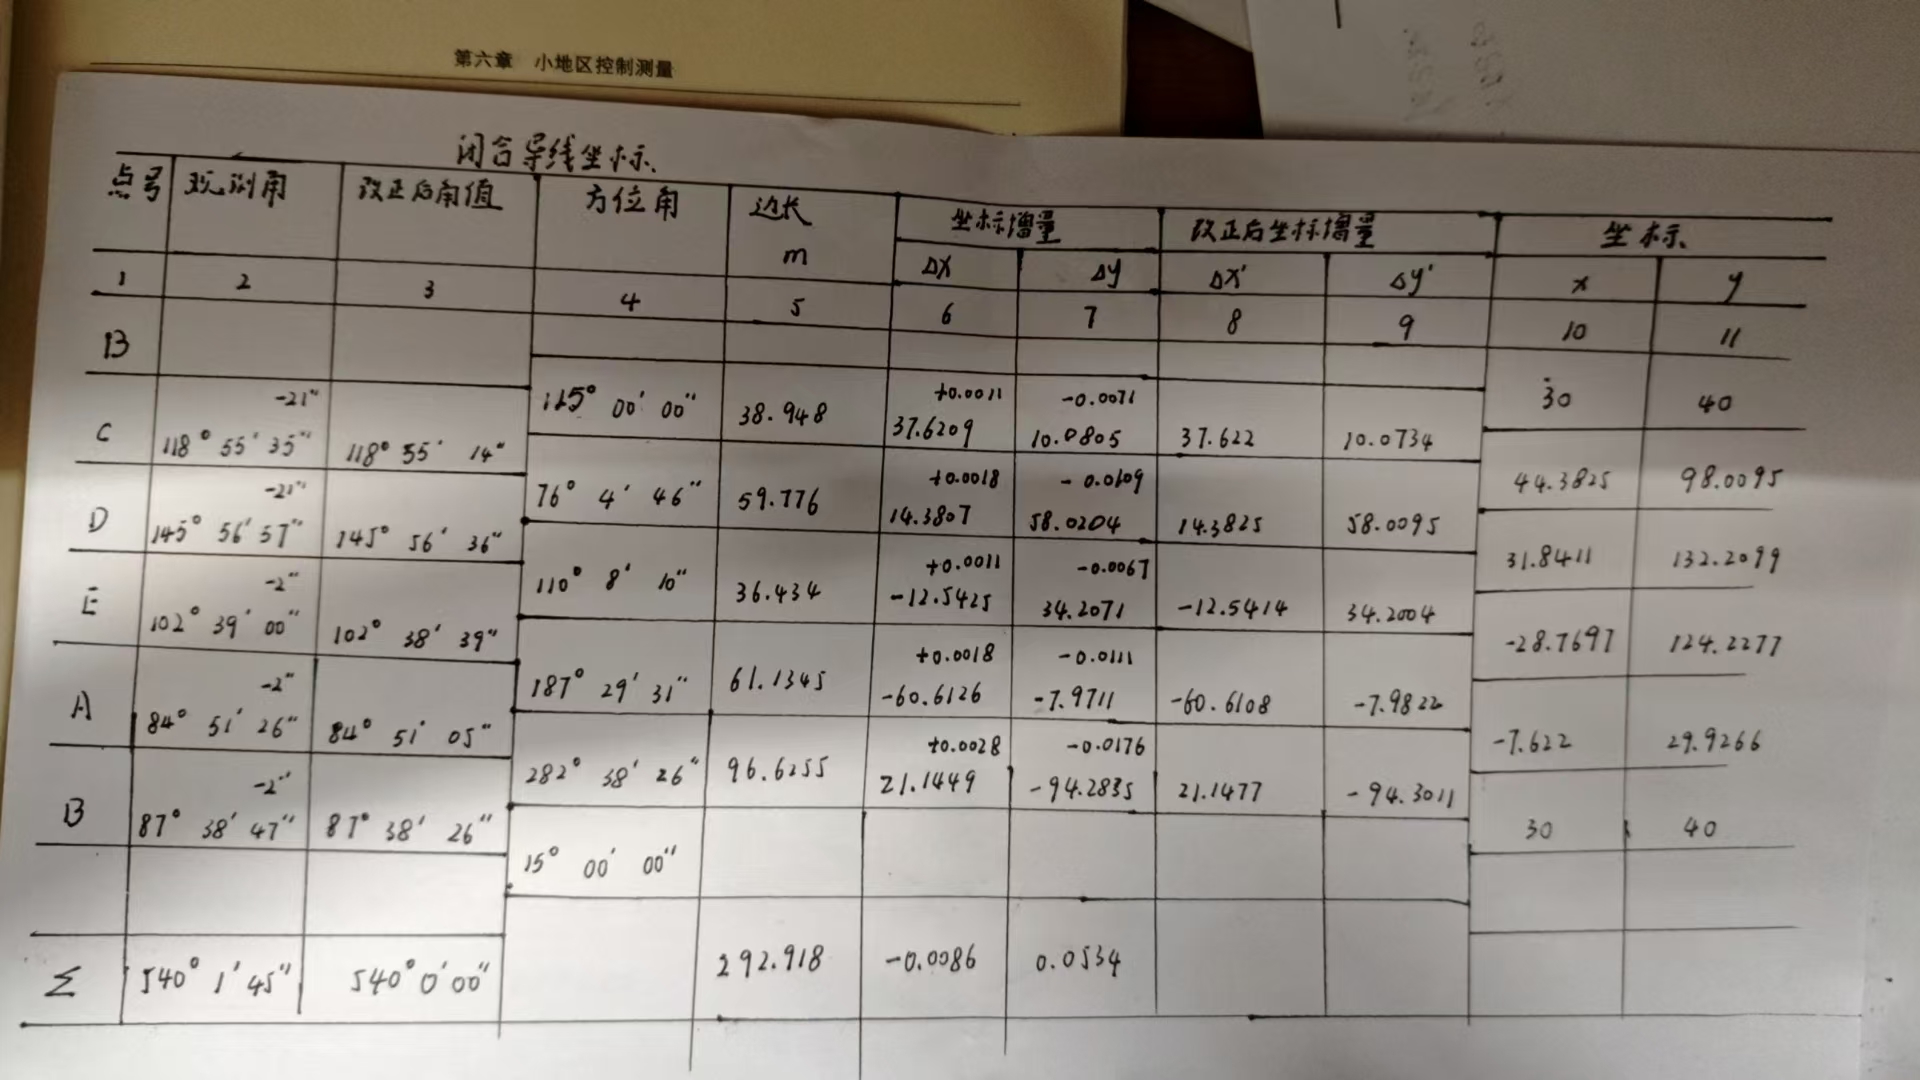 第六章 小地区控制测量
闭合导线坐标
点号 观测角 改正后角值 方位角 边长 m 坐标增量 改正后坐标增量 坐标
Δx Δy Δx' Δy' x y
1 2 3 4 5 6 7 8 9 10 11
B
115° 00' 00" 38.948 +0.0011 -0.0071 30 40
37.6209 10.0805 37.622 10.0734
C -21"
118° 55' 35" 118° 55' 14"
76° 4' 46" 59.776 +0.0018 -0.0109 44.3825 98.0095
14.3807 58.0204 14.3825 58.0095
D -21"
145° 56' 57" 145° 56' 36"
110° 8' 10" 36.434 +0.0011 -0.0067 31.8411 132.2099
-12.5425 34.2071 -12.5414 34.2004
E -2"
102° 39' 00" 102° 38' 39"
187° 29' 31" 61.1345 +0.0018 -0.0111 -28.7697 124.2277
-60.6126 -7.9711 -60.6108 -7.9822
A -2"
84° 51' 26" 84° 51' 05"
282° 38' 26" 96.6255 +0.0028 -0.0176 -7.622 29.9266
21.1449 -94.2835 21.1477 -94.3011
B -2"
87° 38' 47" 87° 38' 26" 30 40
15° 00' 00"
Σ 540° 1' 45" 540° 0' 00" 292.918 -0.0086 0.0534